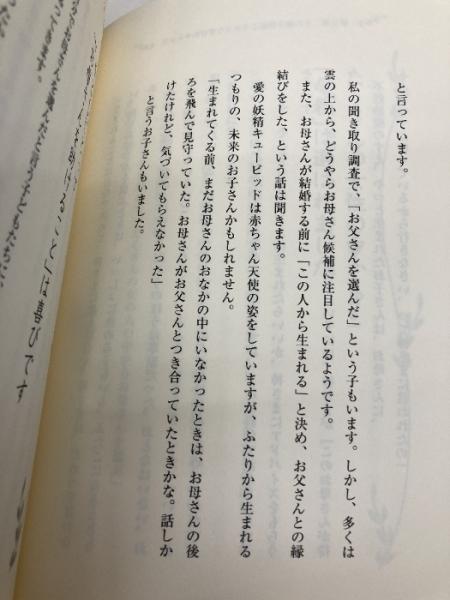 と言っています。
私の聞き取り調査で、「お父さんを選んだ」という子もいます。しかし、多くは
雲の上から、どうやらお母さん候補に注目しているようです。
また、お母さんが結婚する前に「この人から生まれる」と決め、お父さんとの縁
結びをした、という話は聞きます。
愛の妖精キューピッドは赤ちゃん天使の姿をしていますが、ふたりから生まれる
つもりの、未来のお子さんかもしれません。
「生まれてくる前、まだお母さんのおなかの中にいなかったときは、お母さんの後
ろを飛んで見守っていた。お母さんがお父さんとつき合っていたときかな。話しか
けたけれど、気づいてもらえなかった」
と言うお子さんもいました。
ける、とは喜びです
お母さんを選んだと言う子どもたちに、
てきます。